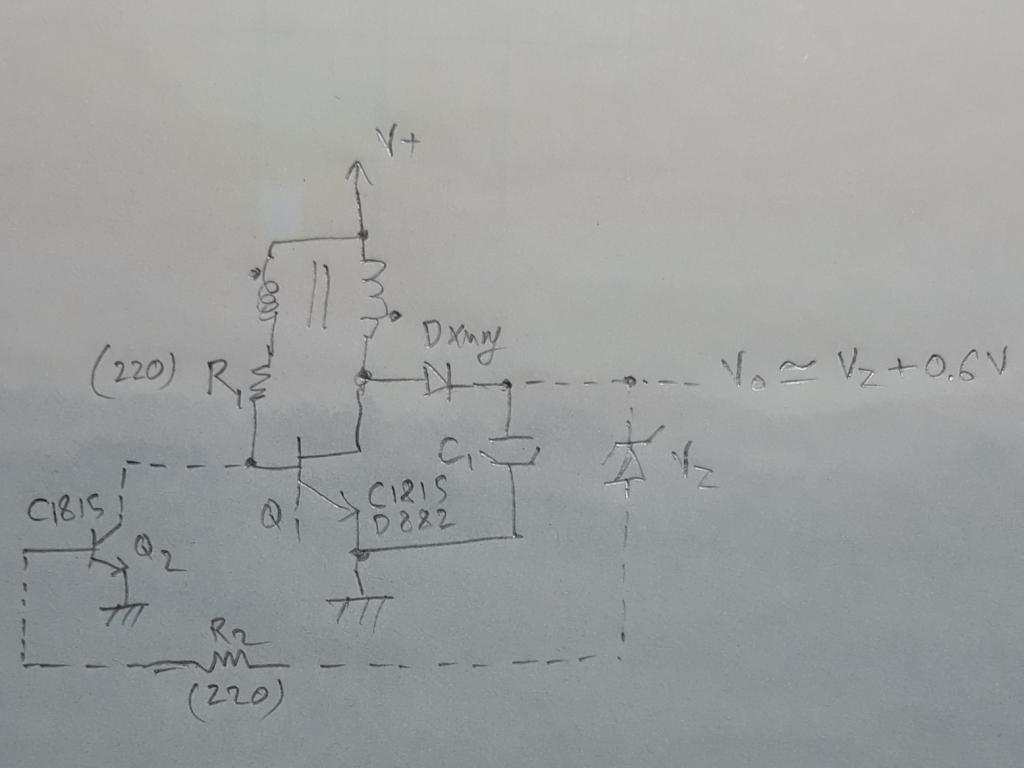 V+
Dxmny
(220) R1
Vo ≃ VZ + 0.6V
C1
VZ
C1815
Q1
C1815
D882
Q2
R2
(220)